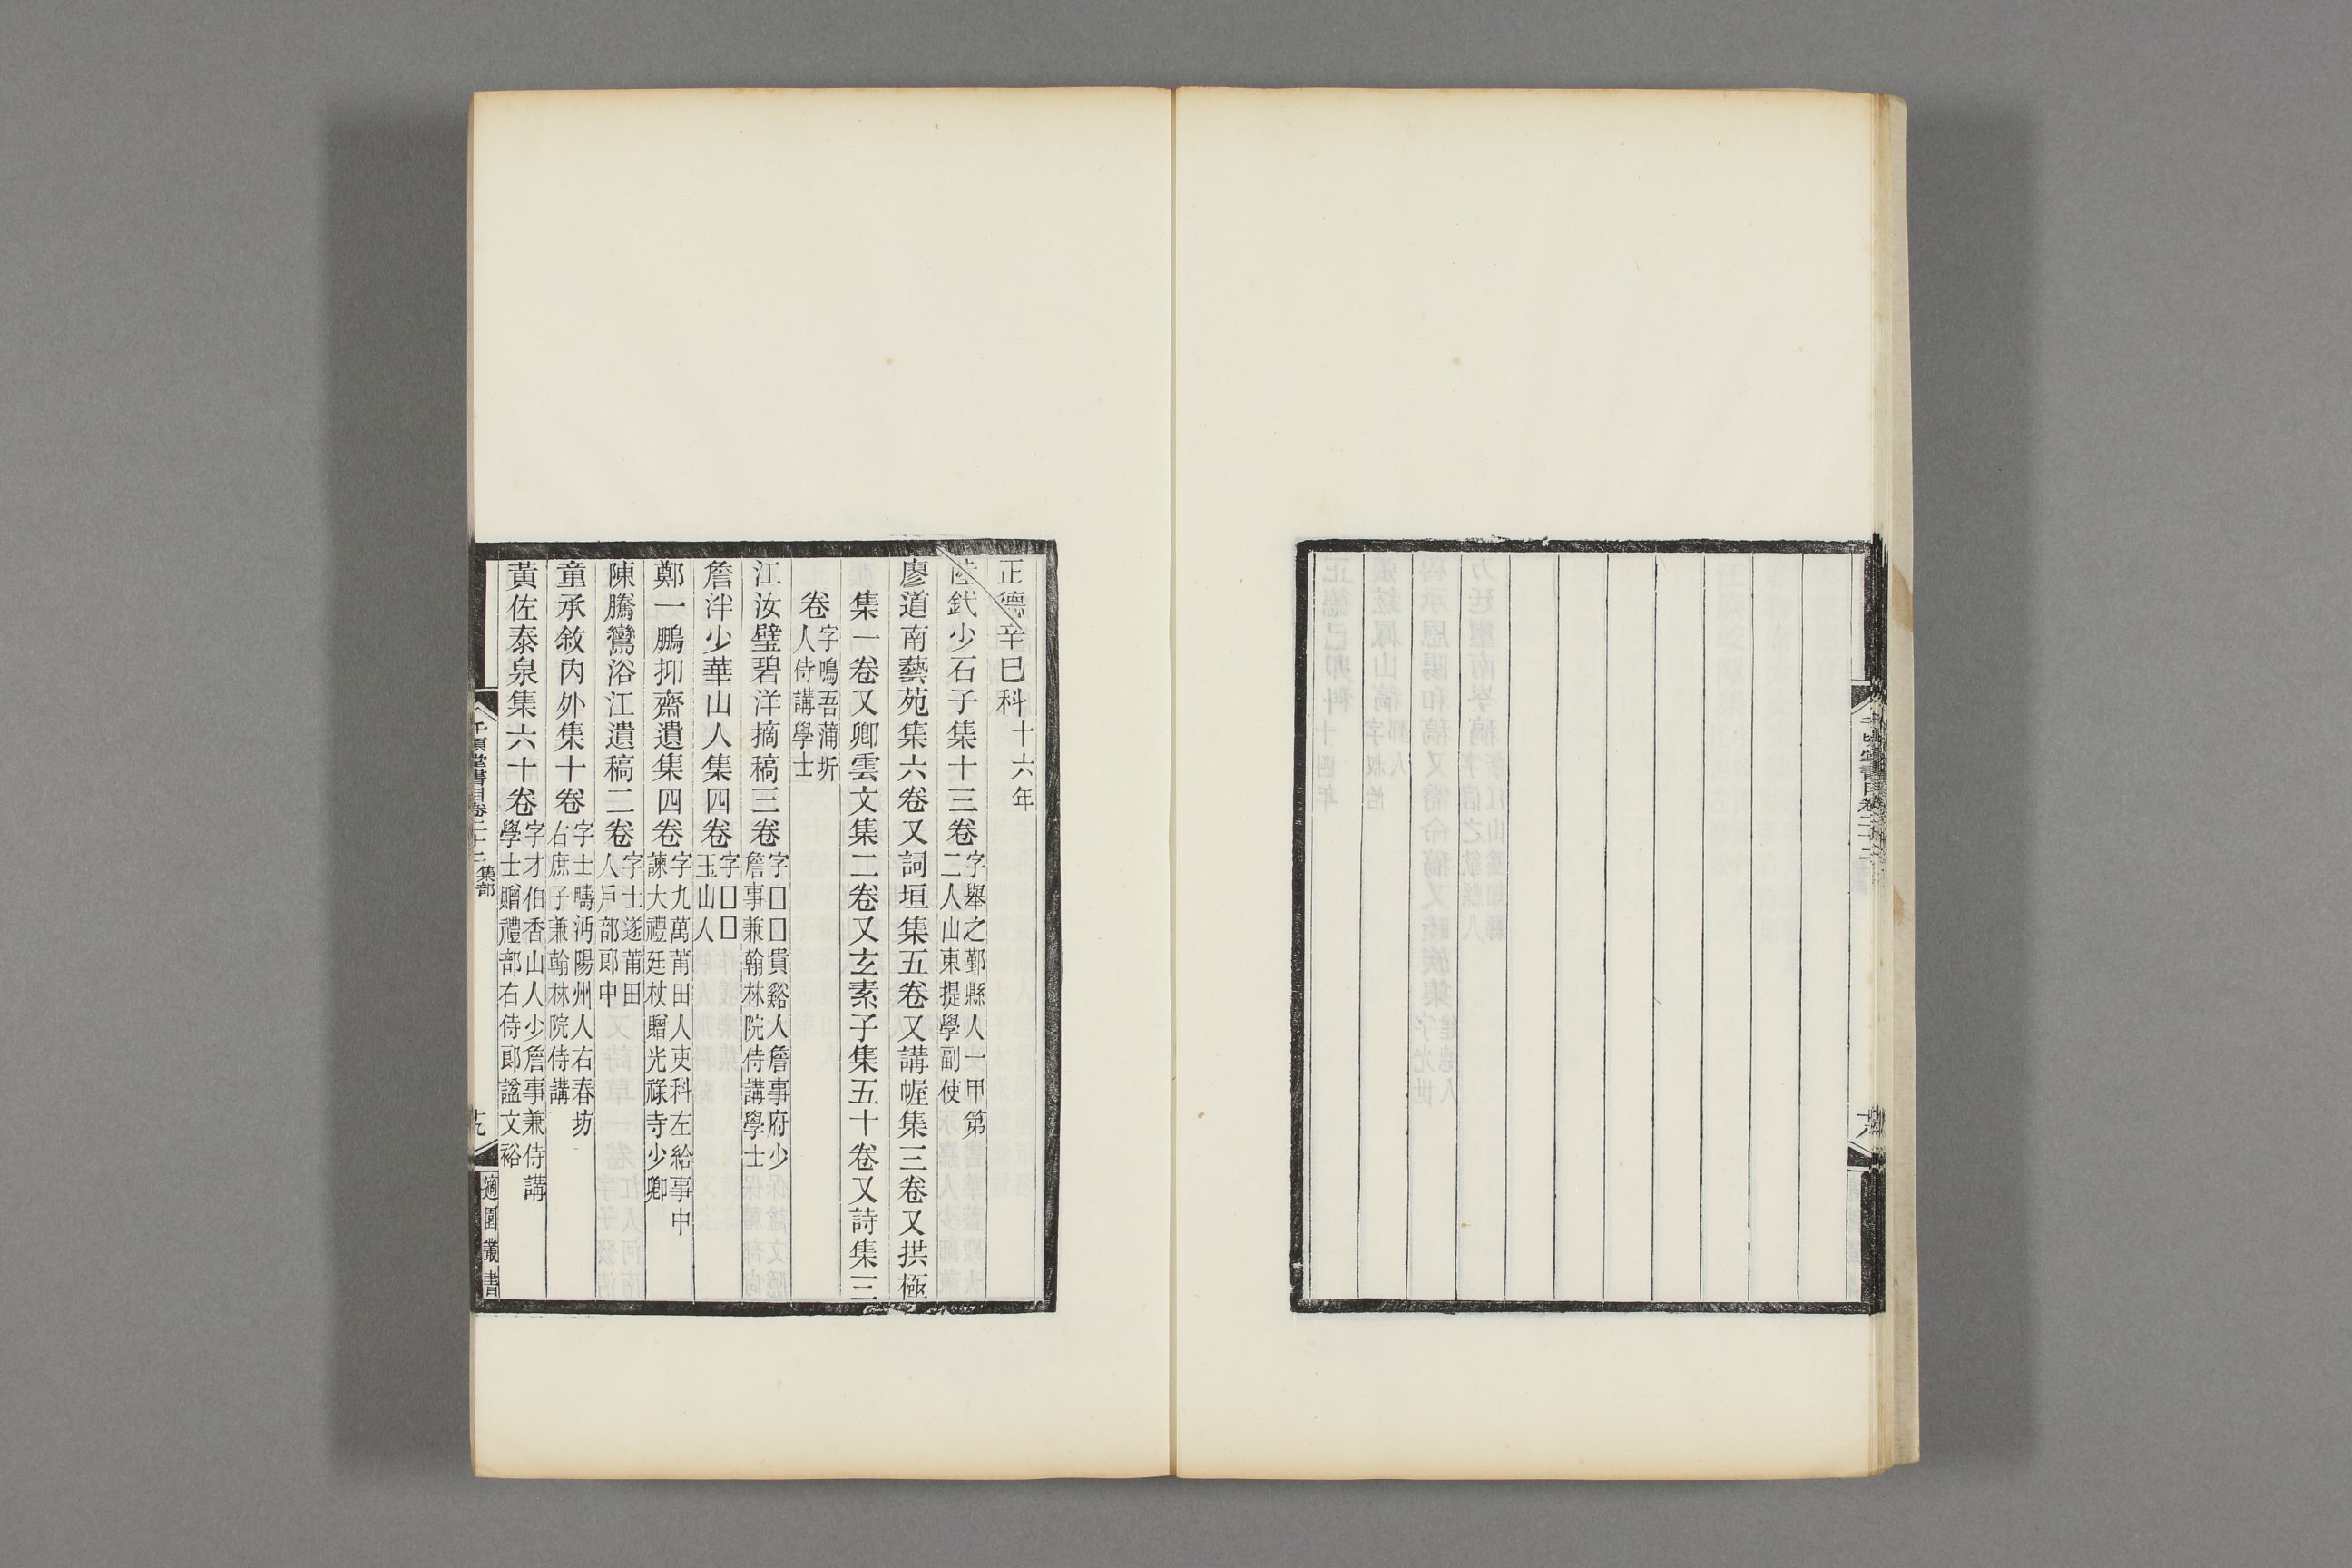 千頃堂書目卷二十二
正德辛巳科十六年
陸釴少石子集十三卷字舉之鄞縣人一甲第二人山東提學副使
廖道南藝苑集六卷又詞垣集五卷又講幄集三卷又拱極
集一卷又卿雲文集二卷又玄素子集五十卷又詩集三
卷字鳴吾蒲圻人侍講學士
江汝璧碧洋摘稿三卷字囗囗貴谿人詹事府少詹事兼翰林院侍講學士
詹泮少華山人集四卷字囗囗玉山人
鄭一鵬抑齋遺集四卷字九萬莆田人吏科左給事中諫大禮廷杖贈光祿寺少卿
陳騰鸞浴江遺稿二卷字士遂莆田人戶部郎中
童承敘內外集十卷字士疇沔陽州人右春坊右庶子兼翰林院侍講
黃佐泰泉集六十卷字才伯香山人少詹事兼侍講學士贈禮部右侍郎諡文裕
千頃堂書目卷二十二 集部
適園叢書